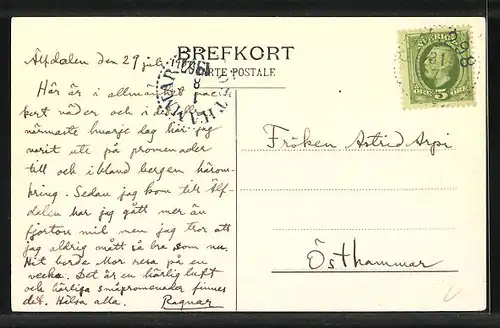 Älfdalen den 29 juli
BREFKORT
CARTE POSTALE
SVERIGE
5
ÖRE
ÖSTHAMMAR
Här är i allmänhet
kort väder och i det allra
närmaste hvarje dag har jag
varit ute på promenader
till och ibland bergen härom-
kring. Sedan jag kom till Älf-
dalen har jag gått mer än
fjorton mil men jag tror att
jag aldrig mått så bra som nu.
Hit borde Mor resa på en
vecka. Det är en härlig luft
och härliga småpromenader finnes
det. Hälsa alla. Ragnar
Fröken Astrid Arpi
Östhammar